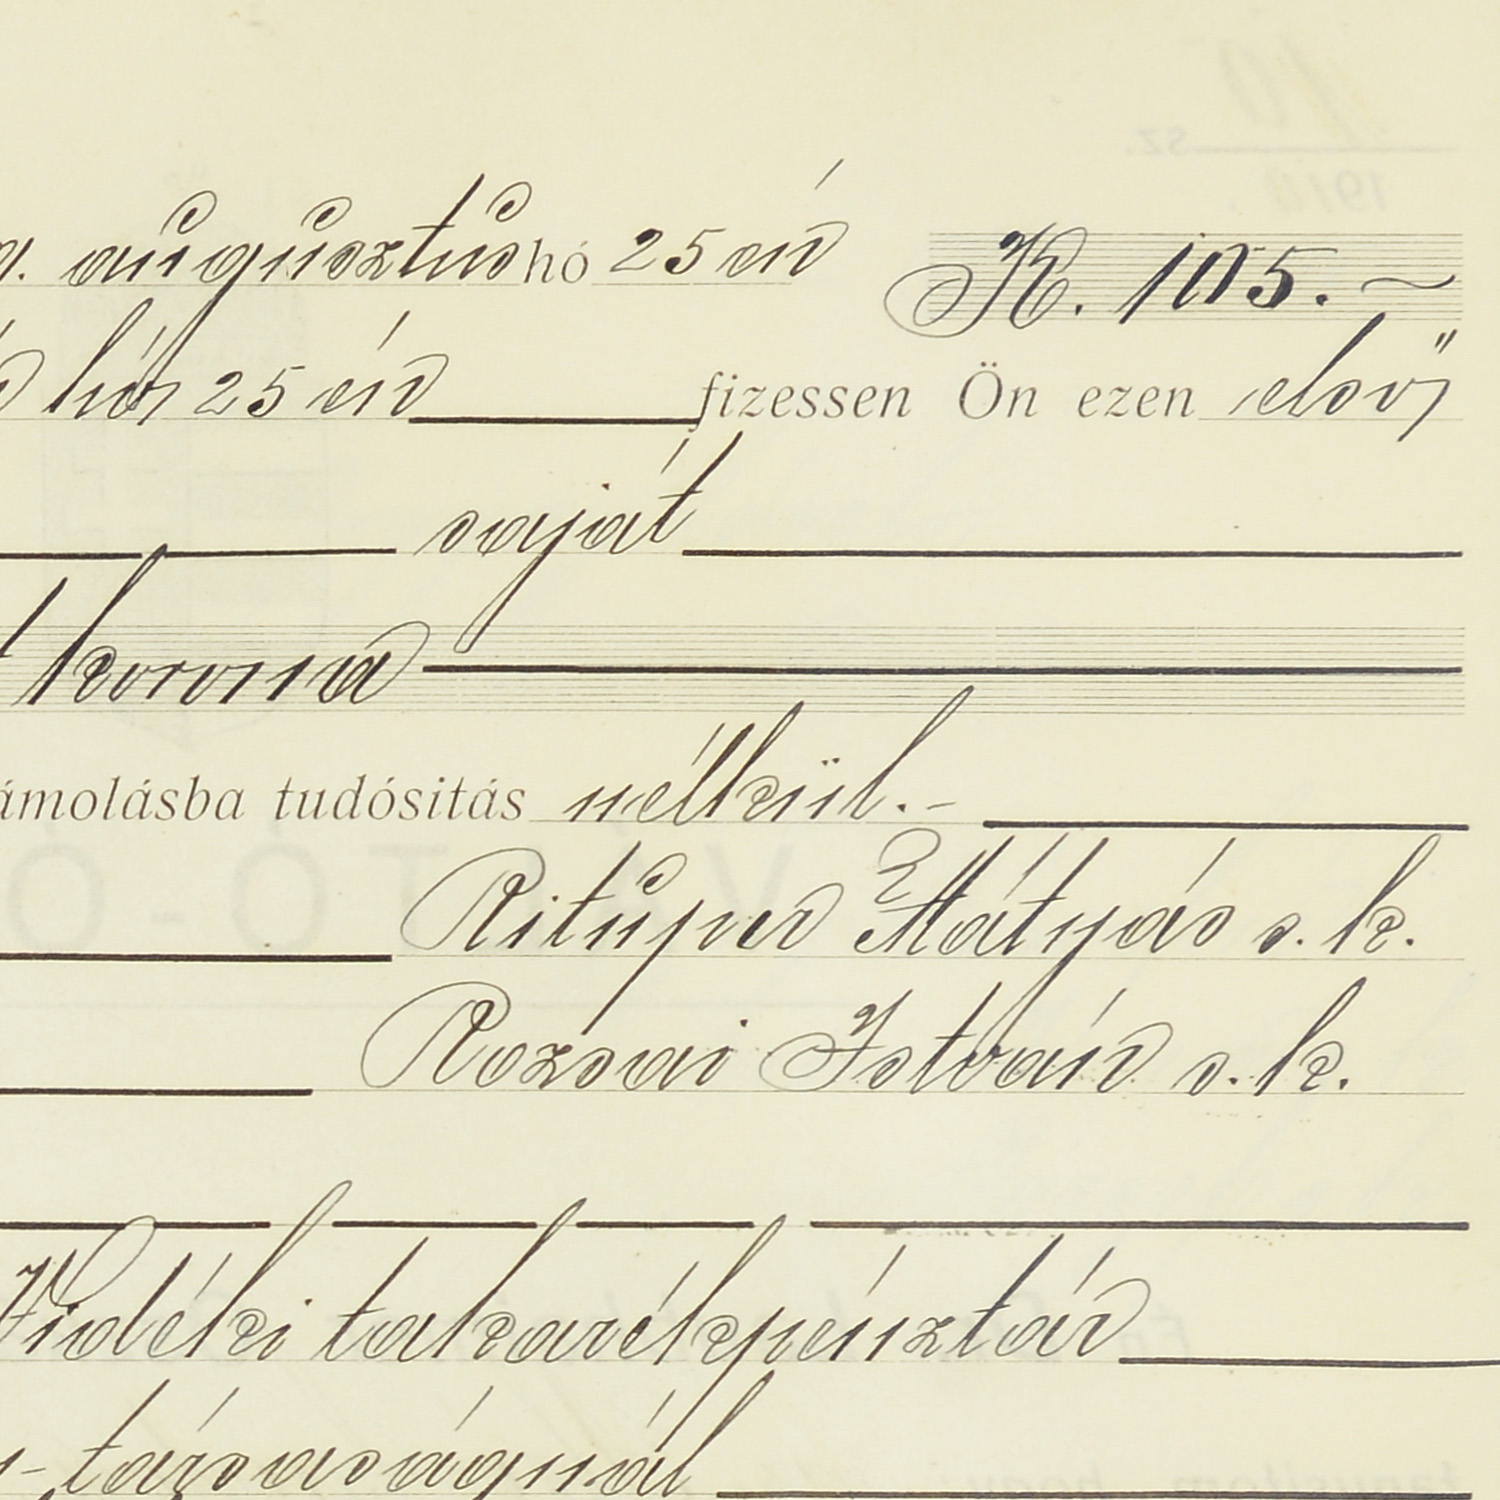 augusztus hó 25 én K. 105. ~
hó 25 én fizessen Ön ezen első
saját
korona
ámolásba tudósitás nélkül.-
Rituper Mátyás s. k.
Rozsai István s. k.
Vidéki takarékpénztár
-társaságnál